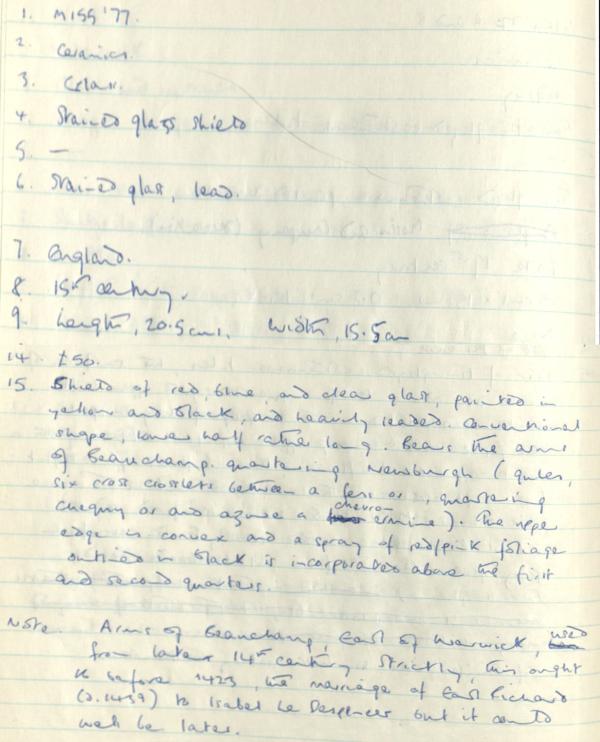 1. MISS '77.
2. Ceramics.
3. Glass.
4. Stained glass shield
5. —
6. Stained glass, lead.
7. England.
8. 15th century.
9. Length, 20.5cms. Width, 15.5cm
14. £50.
15. Shield of red, blue, and clear glass, painted in
yellow and black, and heavily leaded. Conventional
shape, lower half rather long. Bears the arms
of Beauchamp quartering Newburgh (gules,
six cross crosslets between a fess or, quartering
chequy or and azure a chevron ermine). The upper
edge is convex and a spray of red/pink foliage
outlined in black is incorporated above the first
and second quarters.
Note. Arms of Beauchamp, Earl of Warwick, used
from later 14th century. Strictly, this ought
to before 1423, the marriage of Earl Richard
(d.1439) to Isabel le Despencer but it could
well be later.